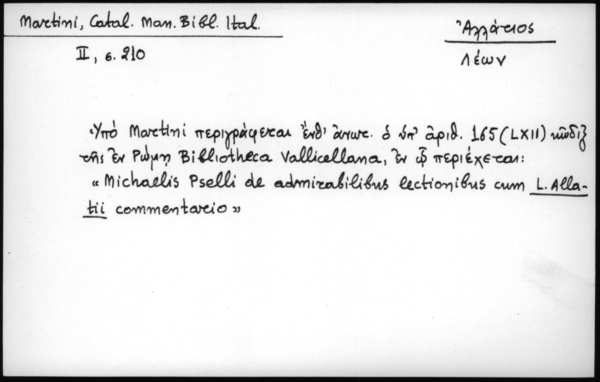 Martini, Catal. Man. Bibl. Ital.
II, σ. 210
Ἀλλάτιος
Λέων
Ὑπὸ Martini περιγράφεται ἔνθ' ἀνωτ. ὁ ὑπ' ἀριθ. 165 (LXII) κῶδιξ
τῆς ἐν Ρώμῃ Bibliotheca Vallicellana, ἐν ᾧ περιέχεται:
« Michaelis Pselli de admirabilibus lectionibus cum L. Alla-
tii commentario »